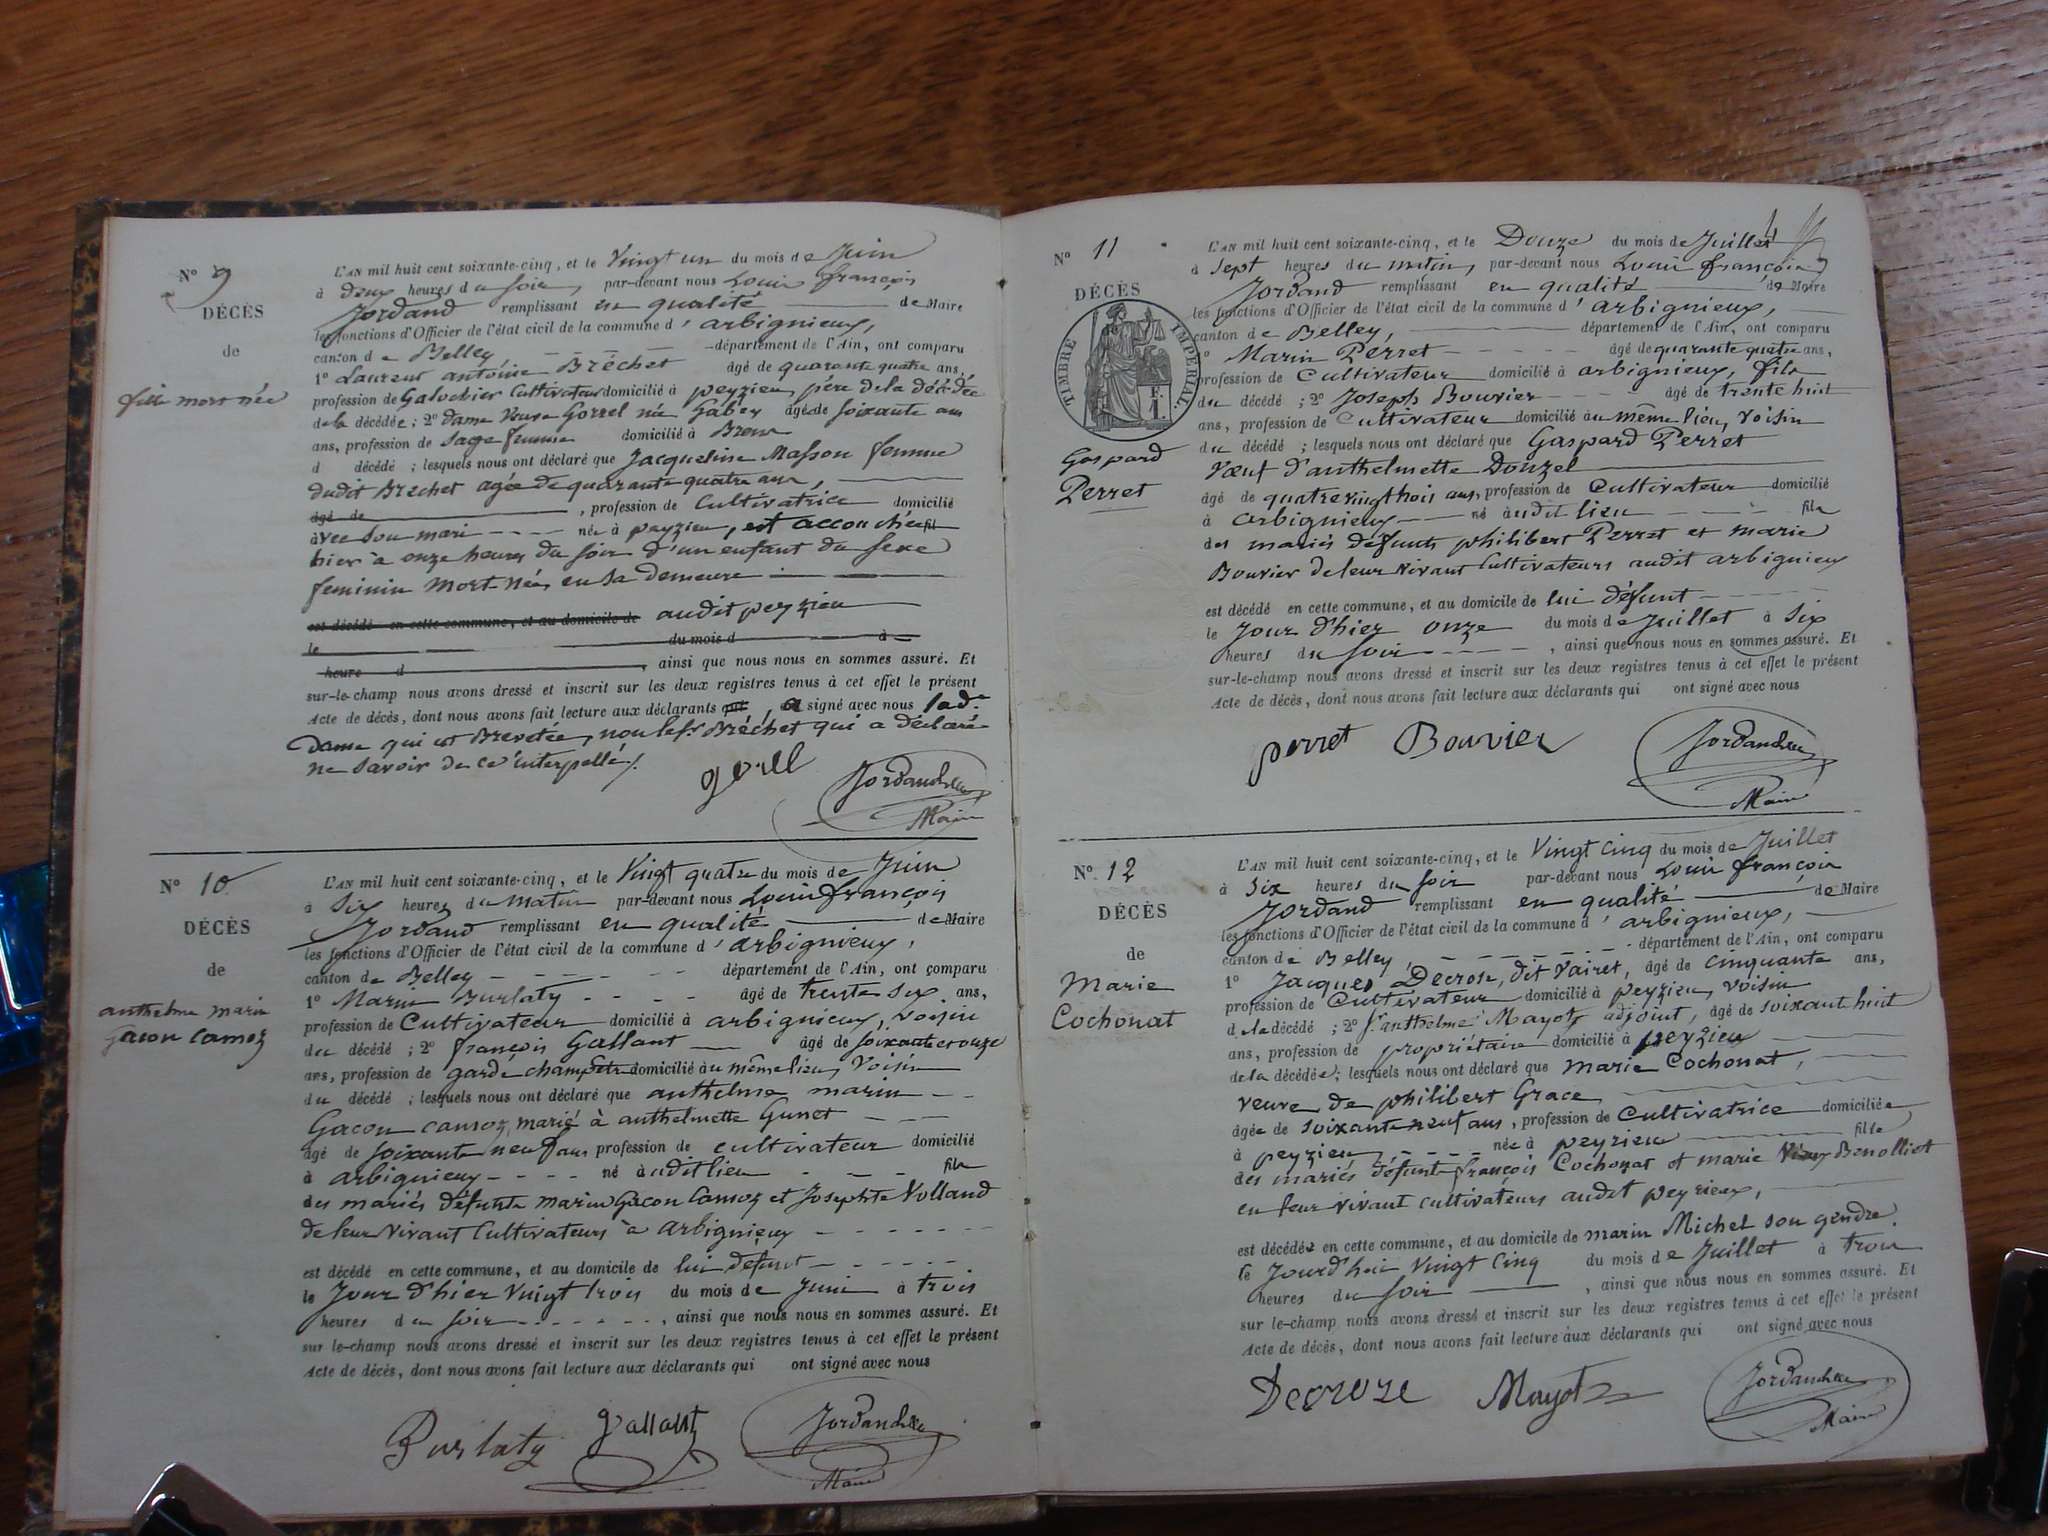 N° 9
DÉCÈS
de
fille mort née
L'AN mil huit cent soixante-cinq, et le Vingt un du mois de Juin
à deux heures du soir, par-devant nous Louis françois
Jordand remplissant en qualité de Maire
les fonctions d'Officier de l'état civil de la commune d'arbignieux,
canton de Belley, département de l'Ain, ont comparu
1° Laurent antoine Bréchet âgé de quarante quatre ans,
profession de Galochier Cultivateur domicilié à peyzieu, père de la décédée
de la décédée ; 2° dame Veuve Gorrel née Gabey âgée de soixante ans
ans, profession de Sage femme domicilié à Brens
d décédé ; lesquels nous ont déclaré que Jacqueline Masson femme
dudit Brechet agée de quarante quatre ans,
âgé de , profession de Cultivatrice domicilié
avec son mari née à peyzieu, est accouchée fil
hier à onze heures du soir d'un enfant du sexe
feminin mort née, en sa demeure
est décédé en cette commune, et au domicile de audit peyzieu
le du mois d à
heure d , ainsi que nous nous en sommes assuré. Et
sur-le-champ nous avons dressé et inscrit sur les deux registres tenus à cet effet le présent
Acte de décès, dont nous avons fait lecture aux déclarants qui, a signé avec nous lad.e
dame qui est Brevetée, non led. Bréchet qui a déclaré
ne savoir de ce interpellé/.
gorell Jordand
Maire
N° 10
DÉCÈS
de
anthelme marin
gacon camoz
L'AN mil huit cent soixante-cinq, et le Vingt quatre du mois de Juin
à Six heures du matin par-devant nous Louis françois
Jordand remplissant en qualité de Maire
les fonctions d'Officier de l'état civil de la commune d'arbignieux,
canton de Belley département de l'Ain, ont comparu
1° Marin Burlaty âgé de trente six ans,
profession de Cultivateur domicilié à arbignieux, voisin
du décédé ; 2° françois Gallant âgé de soixante et onze
ans, profession de garde champêtre domicilié au même lieu, voisin
du décédé ; lesquels nous ont déclaré que anthelme marin
Gacon camoz, marié à anthelmette Gunet
âgé de soixante neuf ans profession de cultivateur domicilié
à arbignieux né audit lieu fils
des mariés défunts marin Gacon Camoz et Josephte Volland
de leur vivant Cultivateurs à arbignieux
est décédé en cette commune, et au domicile de lui défunt
le Jour d'hier vingt trois du mois de Juin à trois
heures du soir, ainsi que nous nous en sommes assuré. Et
sur le-champ nous avons dressé et inscrit sur les deux registres tenus à cet effet le présent
Acte de décès, dont nous avons fait lecture aux déclarants qui ont signé avec nous
Burlaty gallant Jordand
Maire
N° 11
DÉCÈS
TIMBRE IMPÉRIAL.
1 F.
Gaspard
Perret
L'AN mil huit cent soixante-cinq, et le Douze du mois de Juillet
à sept heures du matin, par-devant nous Louis françois
Jordand remplissant en qualité de Maire
les fonctions d'Officier de l'état civil de la commune d'arbignieux,
canton de Belley, département de l'Ain, ont comparu
1° Marin Perret âgé de quarante quatre ans,
profession de Cultivateur domicilié à arbignieux, fils
du décédé ; 2° Joseph Bouvier âgé de trente huit
ans, profession de Cultivateur domicilié au même lieu, voisin
du décédé ; lesquels nous ont déclaré que Gaspard Perret
Vœuf d'anthelmette Douzel
âgé de quatre vingt trois ans, profession de Cultivateur domicilié
à arbignieux né audit lieu fils
des mariés défunts philibert Perret et marie
Bouvier de leur vivant Cultivateurs audit arbignieux
est décédé en cette commune, et au domicile de lui défunt
le Jour d'hier onze du mois de Juillet à six
heures du soir, ainsi que nous nous en sommes assuré. Et
sur-le-champ nous avons dressé et inscrit sur les deux registres tenus à cet effet le présent
Acte de décès, dont nous avons fait lecture aux déclarants qui ont signé avec nous
perret Bouvier Jordand
Maire
N° 12
DÉCÈS
de
Marie
Cochonat
L'AN mil huit cent soixante-cinq, et le Vingt cinq du mois de Juillet
à six heures du soir par-devant nous Louis françois
Jordand remplissant en qualité de Maire
les fonctions d'Officier de l'état civil de la commune d'arbignieux,
canton de Belley, département de l'Ain, ont comparu
1° Jacques Decrose, dit Vairet, âgé de cinquante ans,
profession de Cultivateur domicilié à peyzieu, voisin
de la décédé ; 2° Sr anthelme Mayot, adjoint, âgé de soixant huit
ans, profession de propriétaire domicilié à peyzieu
de la décédée ; lesquels nous ont déclaré que marie Cochonat,
veuve de philibert Grace
âgée de soixante neuf ans, profession de Cultivatrice domiciliée
à peyzieu née à peyzieu fille
des mariés défunt françois Cochonat et marie Benolliet
en leur vivant cultivateurs audit peyzieux,
est décédée en cette commune, et au domicile de marin Michel son gendre.
le Jourd'hui vingt cinq du mois de Juillet à trois
heures du soir, ainsi que nous nous en sommes assuré. Et
sur le-champ nous avons dressé et inscrit sur les deux registres tenus à cet effet le présent
Acte de décès, dont nous avons fait lecture aux déclarants qui ont signé avec nous
Decroze Mayot Jordand
Maire